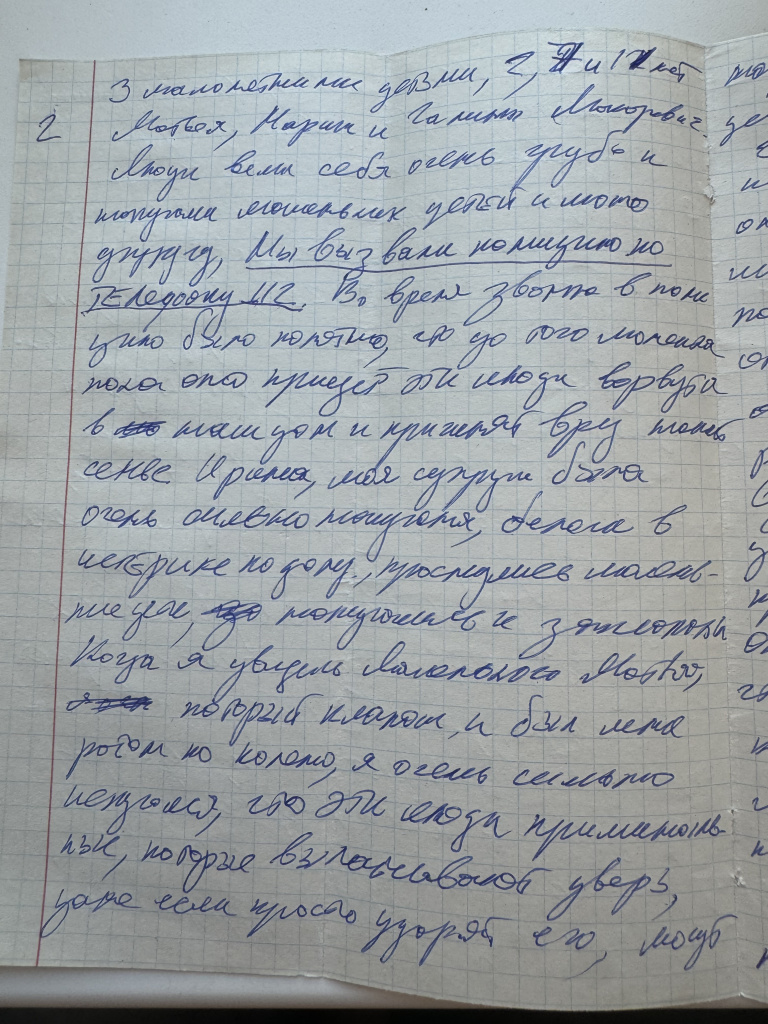 2
3 малолетними детьми, 2, 7 и 12 лет
Матвея, Марии и Галины Макаревич.
Люди вели себя очень грубо и
напугали маленьких детей и мою
Мы вызвали полицию по
телефону 112. Во время звонка в поли
цию было понятно, что до того момента
пока она приедет эти люди ворвутся
в наш дом и причинят вред нашей
семье Ирина, моя супруга была
очень сильно напугана, бегала в
истерике по дому, проснулись малень-
кие дети, напугались и
Когда я увидел маленького Матвея,
который плакал, и был
ротом на, я очень сильно
испугался, что эти люди криминаль-
ные, которые выламывают дверь,
даже если просто ударят его, могут